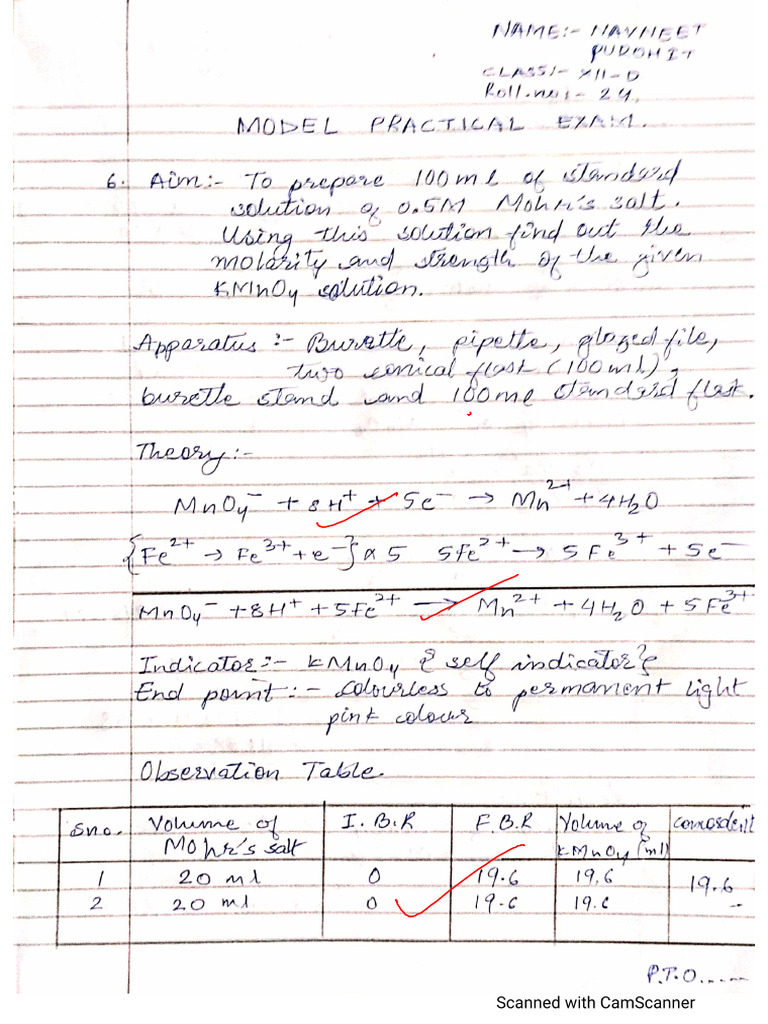 NAME:- NAVNEET
PUROHIT
CLASS:- XII-D
Roll.no:- 24.
MODEL PRACTICAL EXAM.
6. Aim:- To prepare 100 ml of standard
solution of 0.5M Mohr's salt.
Using this solution find out the
molarity and strength of the given
KMnO4 solution.
Apparatus:- Burette, pipette, glazed file,
two conical flask (100 ml),
burette stand and 100 ml standard flask.
Theory:-
MnO4⁻ + 8H⁺ + 5e⁻ → Mn²⁺ + 4H2O
{Fe²⁺ → Fe³⁺ + e⁻} x 5 5fe²⁺ → 5Fe³⁺ + 5e⁻
MnO4⁻ + 8H⁺ + 5Fe²⁺ → Mn²⁺ + 4H2O + 5Fe³⁺
Indicator:- KMnO4 { self indicator }
End point:- Colourless to permanent light
pink colour
Observation Table.
Sno. Volume of Mohr's salt I.B.R F.B.R Volume of KMnO4 (ml)
1 20 ml 0 19.6 19.6 19.6
2 20 ml 0 19.6 19.6
P.T.O.....
Scanned with CamScanner